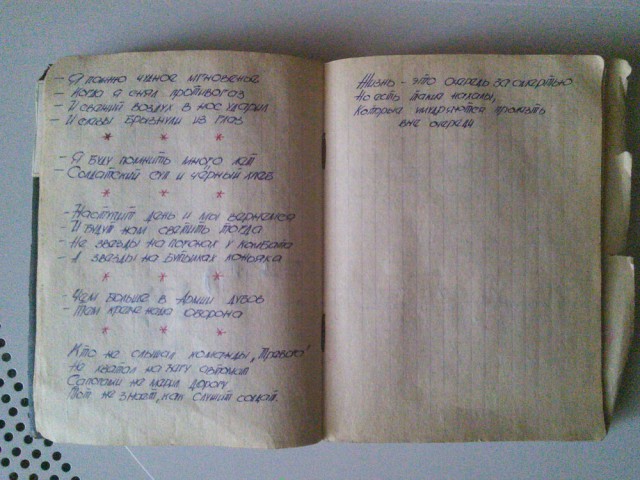 - Я помню чудное мгновение
- Когда я снял противогаз
- И свежий воздух в нос ударил
- И слёзы брызнули из глаз
* * *
- Я буду помнить много лет
- Солдатский суп и чёрный хлеб
* * *
- Наступит день и мы вернемся
- И будут нам светить тогда
- Не звезды на погонах у комбата
- А звезды на бутылках коньяка
* * *
- Чем больше в Армии дубов
- Тем крепче наша оборона
* * *
Кто не слышал команды „Тревога"
Не хватал на бегу автомат
Сапогами не мерил дорогу
Тот не знает, как служит солдат.
Жизнь - это очередь за смертью
Но есть такие нахалы,
Которые умудряются пролезть
вне очереди